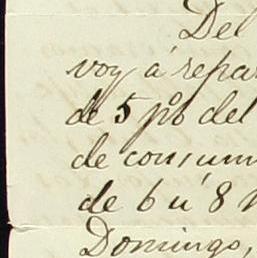 Del
voy á repar
de 5 p% del
de consum
de 6 u 8
Domingo,